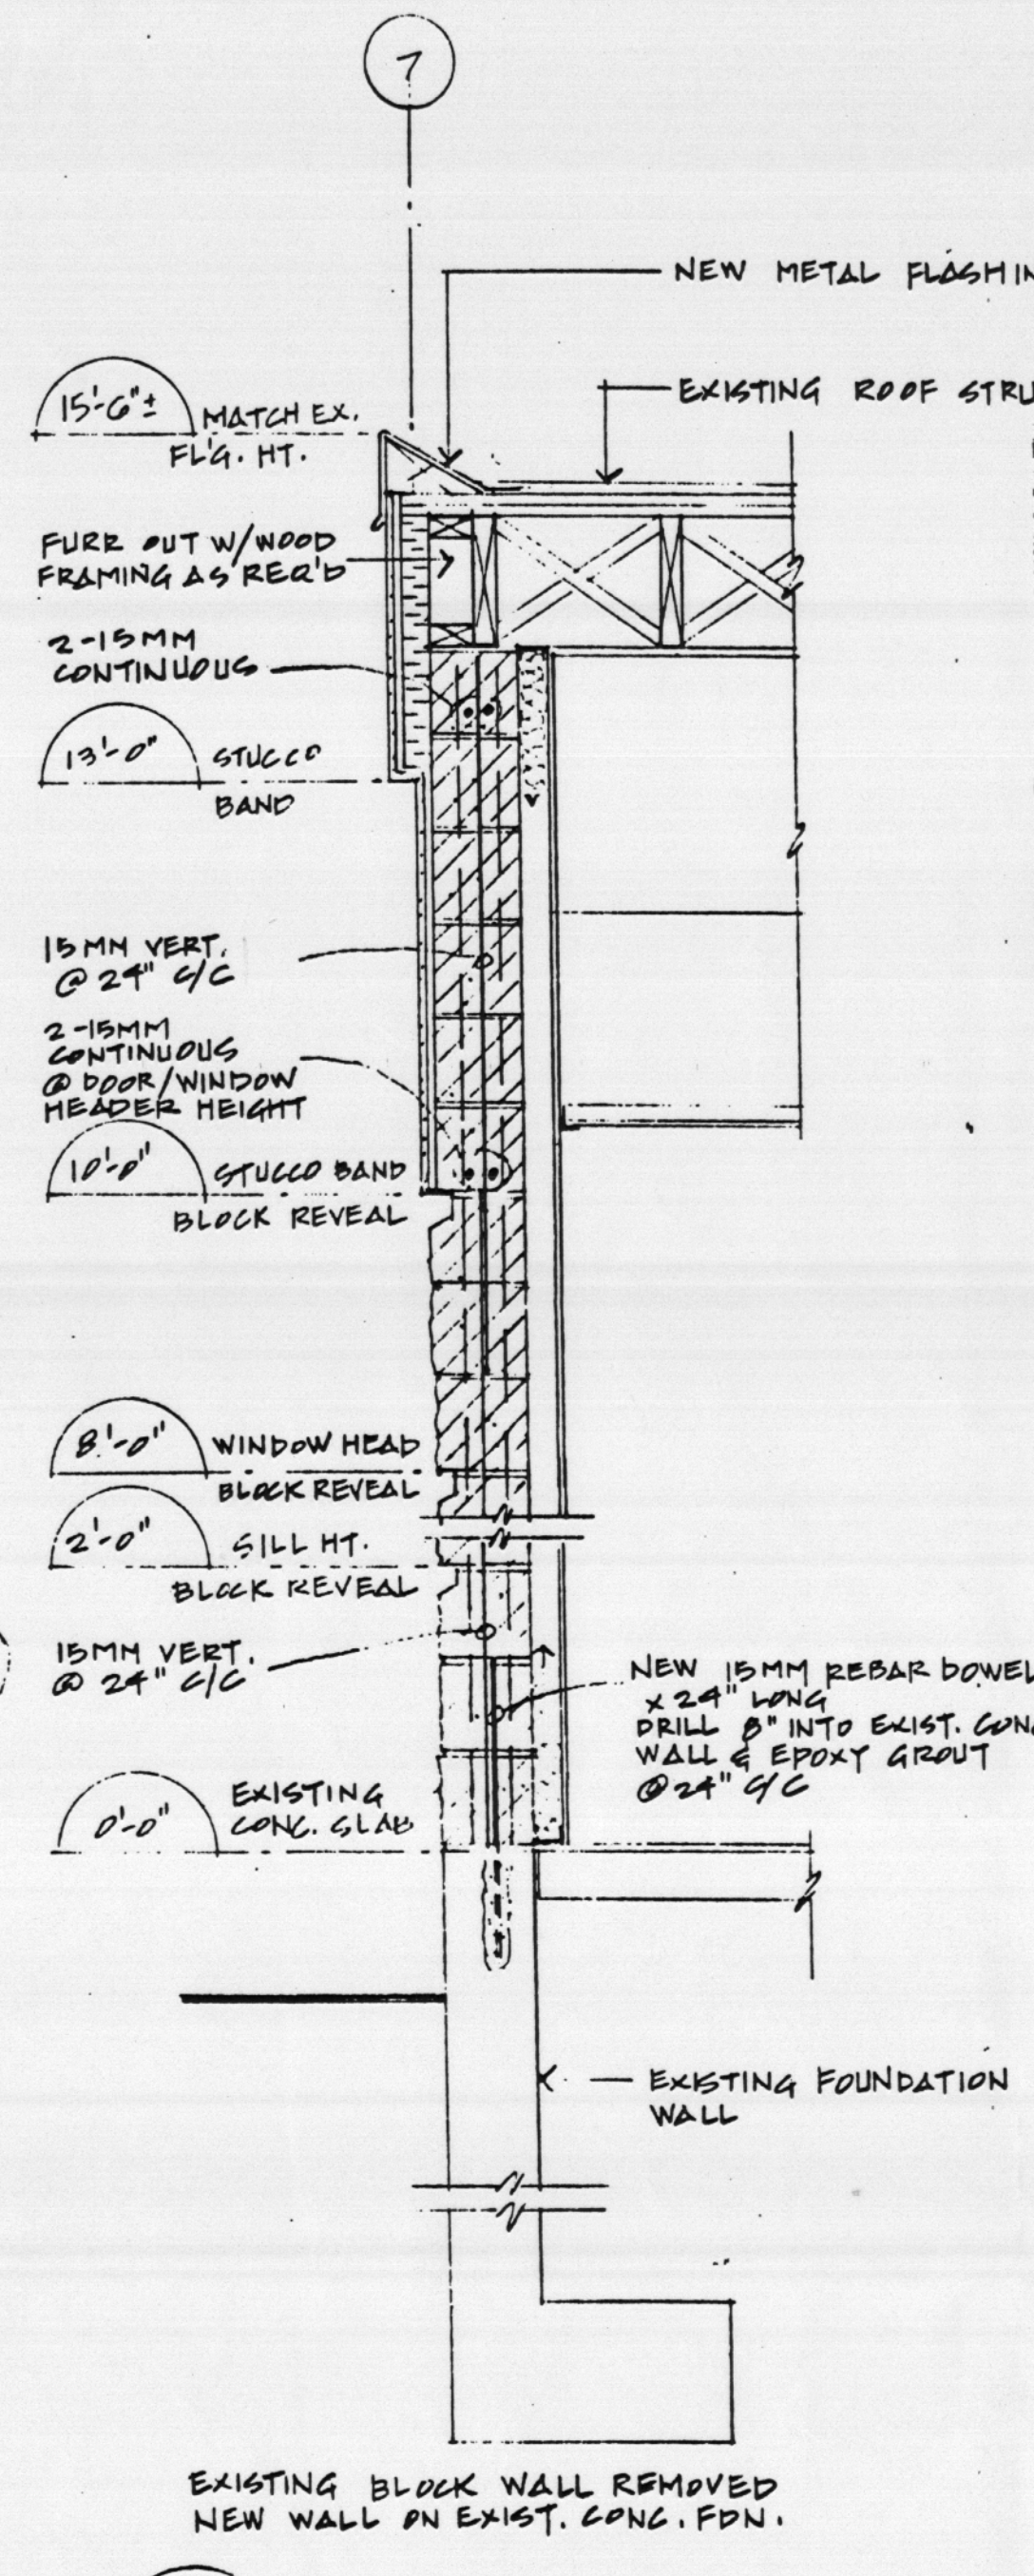 7
NEW METAL FLASHIN
EXISTING ROOF STRU
15'-6"±
MATCH EX.
FL'G. HT.
FURR OUT W/WOOD
FRAMING AS REQ'D
2-15MM
CONTINUOUS
13'-0"
STUCCO
BAND
15MM VERT.
@ 24" C/C
2-15MM
CONTINUOUS
@ DOOR/WINDOW
HEADER HEIGHT
10'-0"
STUCCO BAND
BLOCK REVEAL
8'-0"
WINDOW HEAD
BLOCK REVEAL
2'-0"
SILL HT.
BLOCK REVEAL
15MM VERT.
@ 24" C/C
NEW 15MM REBAR DOWEL
x 24" LONG
DRILL 8" INTO EXIST. CONC
WALL & EPOXY GROUT
@ 24" C/C
0'-0"
EXISTING
CONC. SLAB
EXISTING FOUNDATION
WALL
EXISTING BLOCK WALL REMOVED
NEW WALL ON EXIST. CONC. FDN.